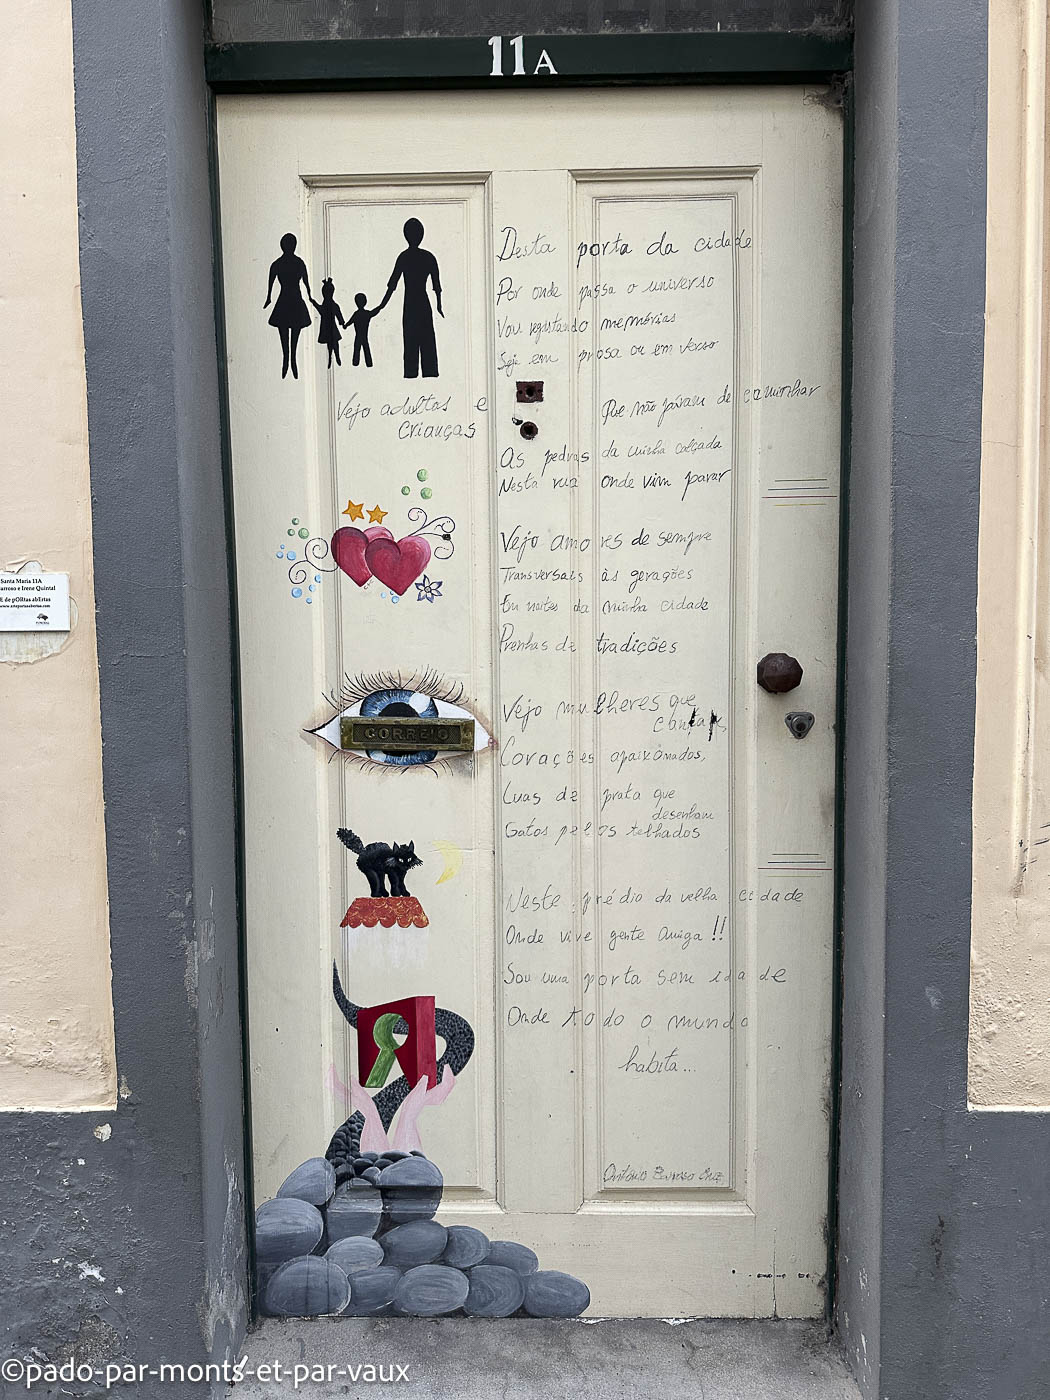 11A
Desta porta da cidade
Por onde passa o universo
Vou registando memórias
Seja em prosa ou em verso
Vejo adultos e
crianças
Que não páram de caminhar
As pedras da minha calçada
Nesta rua onde vim parar
Vejo amores de sempre
Transversais às gerações
Em noites da minha cidade
Prenhas de tradições
Vejo mulheres que
cantam
Corações apaixonados,
Luas de prata que
desenham
Gatos pelos telhados
CORREIO
Neste prédio da velha cidade
Onde vive gente amiga!!
Sou uma porta sem idade
Onde todo o mundo
habita...
António Barroso Cruz
Santa Maria 11A
arroso e Irene Quintal
E de pORtas abErtas
www.arteportasabertas.com
©pado-par-monts-et-par-vaux